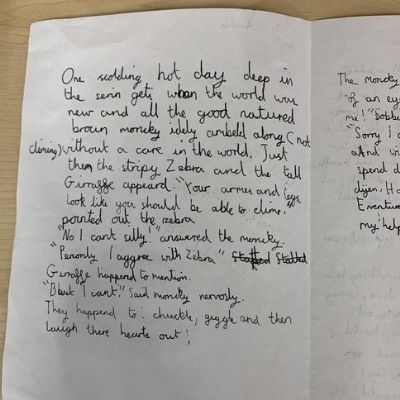 One scolding hot day deep in
the serin geti when the world was
new and all the good natured
brown moncky idly ambeld along (not
climing) without a care in the world. Just
then the stripy Zebra and the tall
Giraffe appeard. "Your armes and legs
look like you should be able to clime."
pointed out the zebra
"No I cant silly!" answered the moncky.
"Personly I aggree with Zebra"
Giraffe happend to mention.
"But I cant." Said moncky nervorly.
They happend to: chuckle, giggle and then
laugh there hearts out!
The moncky
of an ey
me!
"Sorry I
and wi
spend d
Eventur
my help